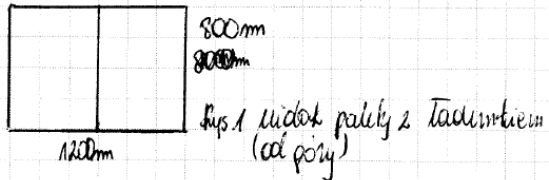 800mm
Rys 1 widok palety z ładunkiem
(od góry)
1200mm